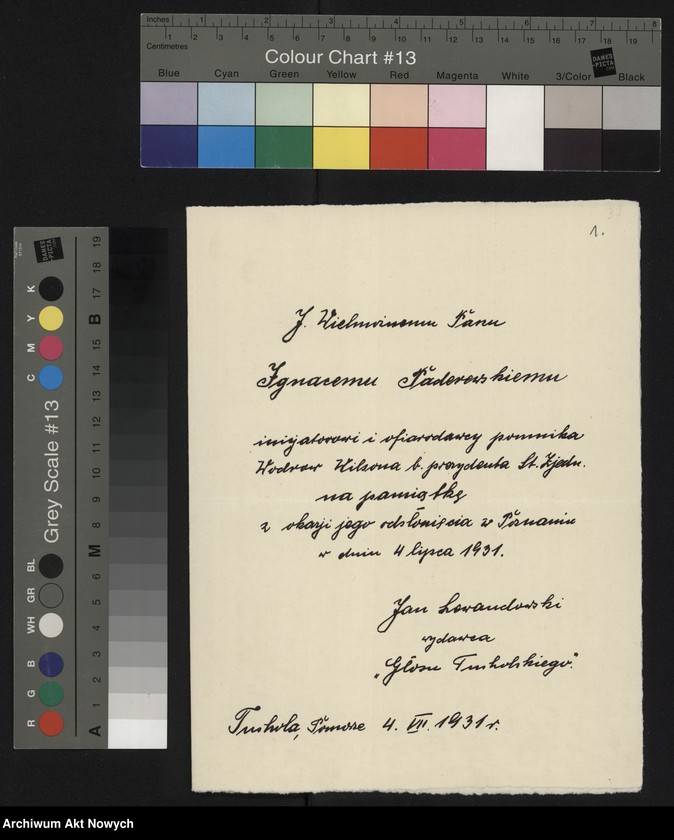 Inches 1 2 3 4 5 6 7 8
1 2 3 4 5 6 7 8 9 10 11 12 13 14 15 16 17 18 19
Centimetres
Colour Chart #13
DANES PICTA
Blue Cyan Green Yellow Red Magenta White 3/Color Black
1.
J. Wielmożnemu Panu
Ignacemu Paderewskiemu
inicjatorowi i ofiarodawcy pomnika
Wodrow Wilsona b. prezydenta St. Zjedn.
na pamiątkę
z okazji jego odsłonięcia w Poznaniu
w dniu 4 lipca 1931.
Jan
wydawca
"Głosu Tucholskiego".
Tuchola, Pomorze 4. VII. 1931 r.
DANES PICTA
Grey Scale #13
R G B WH GR BL C M Y K
A 1 2 3 4 5 6 M 8 9 10 11 12 13 14 15 B 17 18 19
Archiwum Akt Nowych